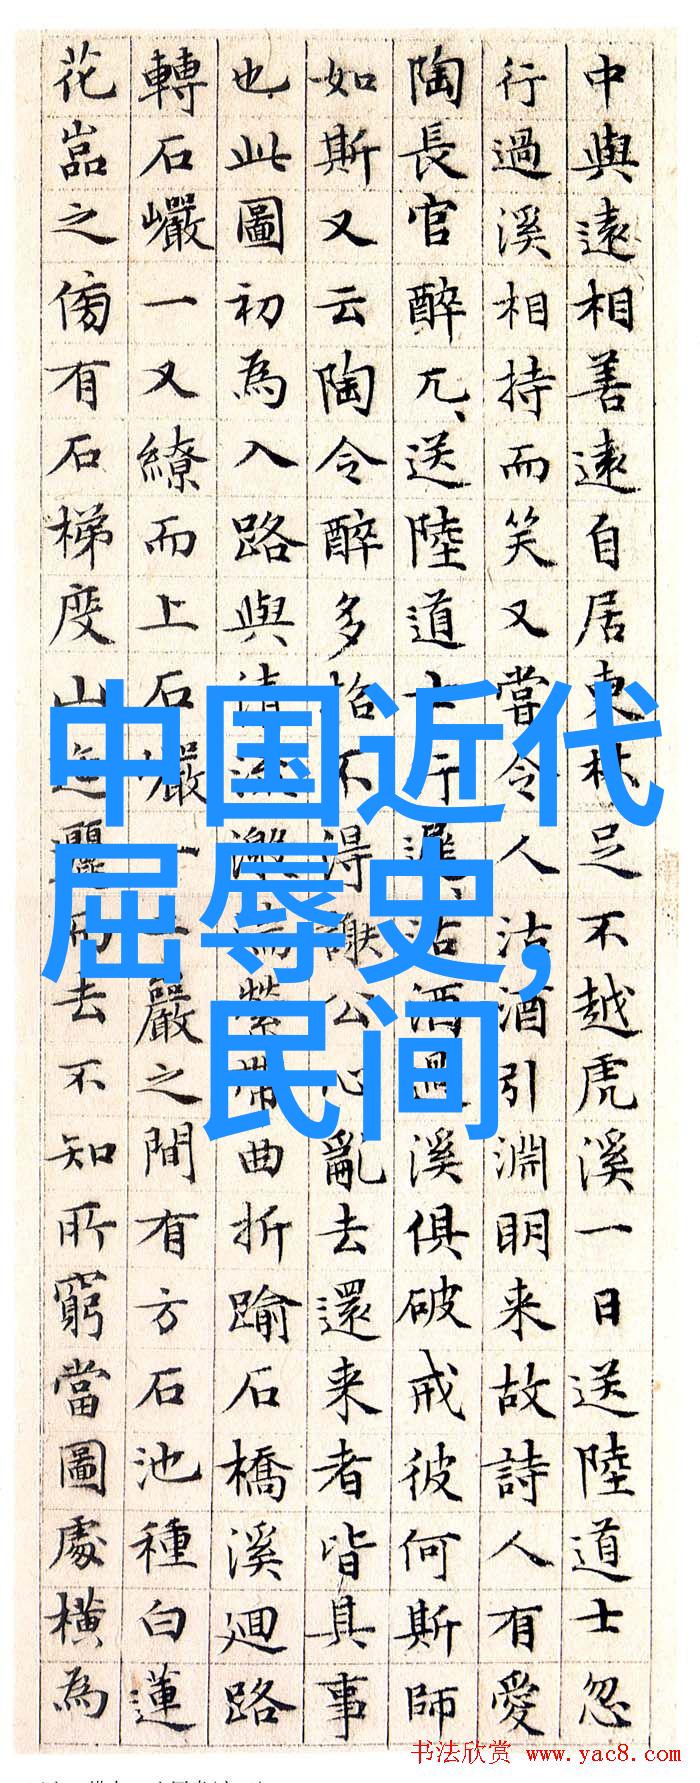 中與遠相善遠自居東林足不越虎溪一日送陸道士忽
行過溪相持而笑又嘗令人沽酒引淵明来故詩人有愛
陶長官醉兀、送陸道士行遲、沽酒過溪俱破戒彼何斯師
如斯又云陶令醉多不得公心亂去還来者皆具事
也此圖初為入路與清流激湍縈帶曲折踰石橋溪廻路
轉石巖一又繚而上石巖一巖之間有方石池種白蓮
花嵓之傍有石梯度山迤邐而去不知所窮當圖處横為
中国近代
屈辱史,
民间
书法欣赏 www.yac8.com